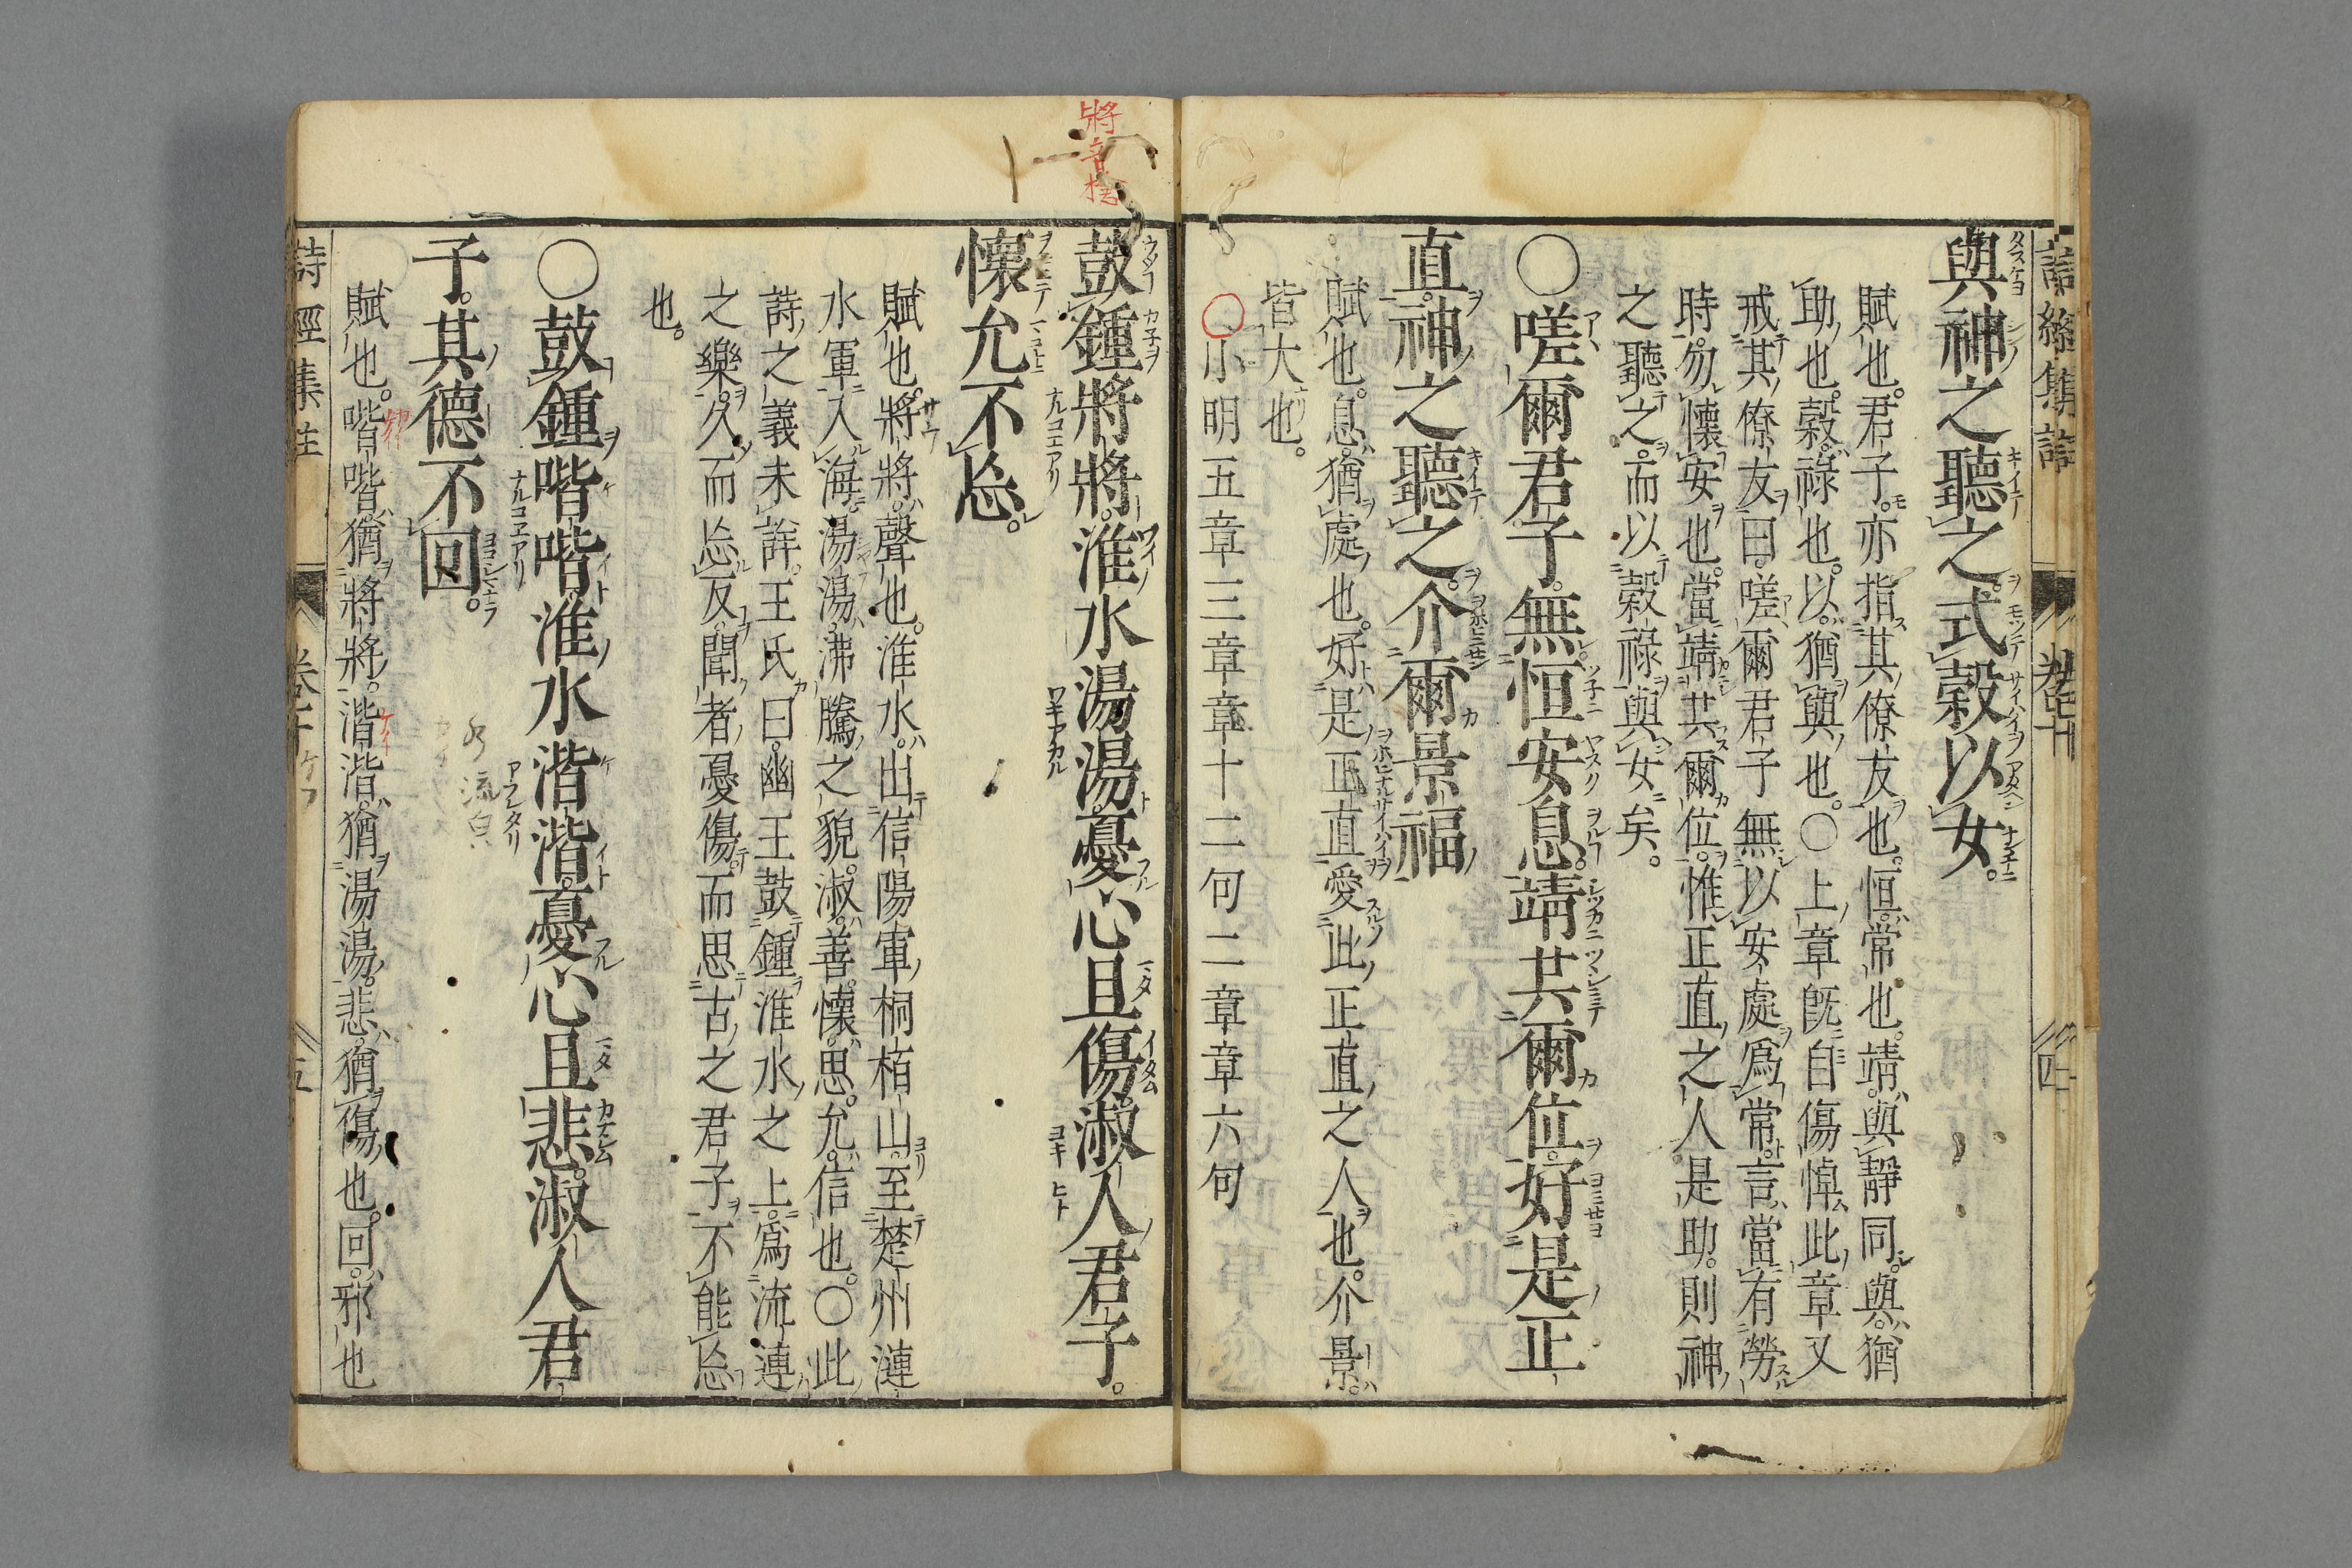 與神之聽之。式穀以女。
賦也。君子。亦指其僚友也。恒。常也。靖。與靜同。與。猶
助也。穀。祿也。以。猶與也。○上章既自傷悼。此章又
戒其僚友曰。嗟爾君子無以安處爲常。言。當有勞
時。勿懷安也。當靖共爾位。惟正直之人是助。則神
之聽之。而以穀祿與女矣。
○嗟爾君子。無恒安息。靖共爾位。好是正
直。神之聽之。介爾景福
賦也。息。猶處也。好是正直愛此正直之人也。介景。
皆大也。
○小明五章三章章十二句二章章六句
將音槍
鼓鍾將將。淮水湯湯。憂心且傷。淑人君子。
懷允不忘。
賦也。將將。聲也。淮水。出信陽軍桐栢山。至楚州漣
水軍入海。湯湯。沸騰之貌。淑。善。懷。思。允。信也。○此
詩之義未詳。王氏曰。幽王鼓鍾淮水之上。爲流連
之樂。久而忘反。聞者憂傷。而思古之君子不能忘
也。
○鼓鍾喈喈。淮水湝湝。憂心且悲。淑人君
子。其德不回。
賦也。喈喈。猶將將。湝湝。猶湯湯。悲。猶傷也。回。邪也
詩經集註